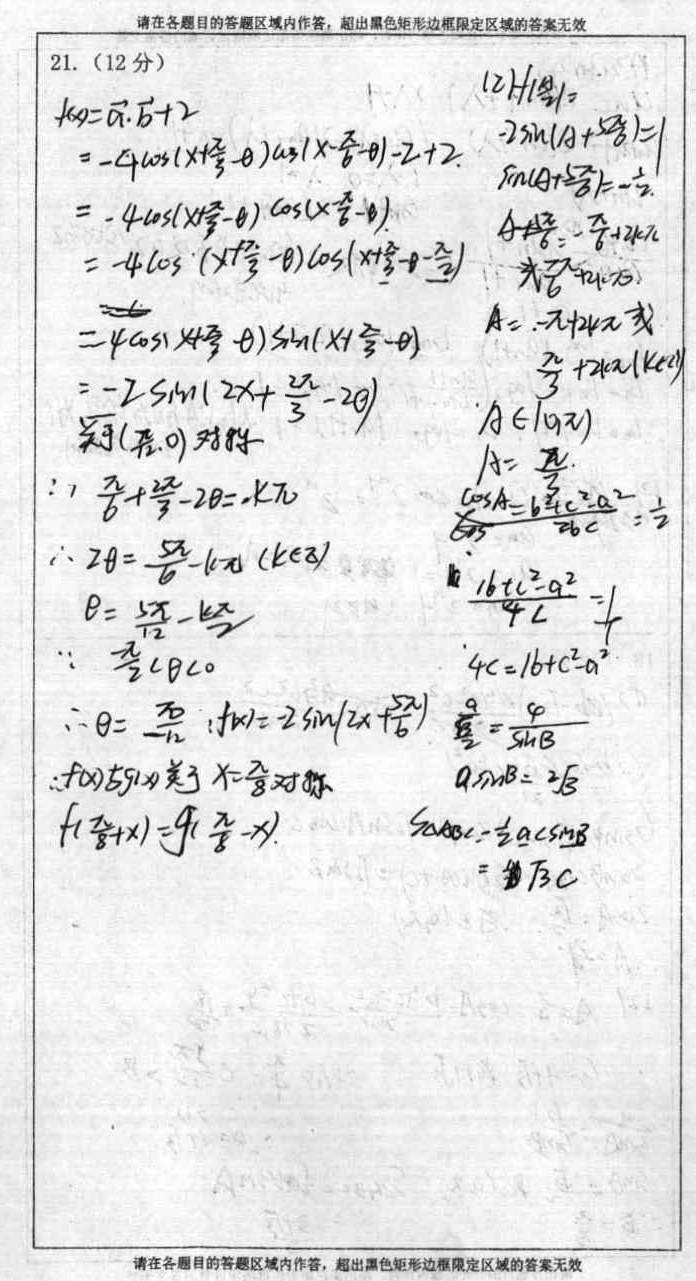 请在各题目的答题区域内作答，超出黑色矩形边框限定区域的答案无效
21.（12分）
f(x)=a⃗·b⃗+2
=-4cos(x+π/3-θ)cos(x-π/6-θ)-2+2
=-4cos(x+π/3-θ)cos(x-π/6-θ)
=-4cos(x+π/3-θ)cos(x+π/3-θ-π/2)
=-4cos(x+π/3-θ)sin(x+π/3-θ)
=-2sin(2x+2π/3-2θ)
关于(π/12,0)对称
∵ π/6+2π/3-2θ=kπ
∴ 2θ=5π/6-kπ (k∈Z)
θ=5π/12-kπ/2
∵ -π/2<θ<0
∴θ=-π/12 ∴f(x)=-2sin(2x+5π/6)
∴f(x)与g(x)关于x=π/8对称
f(π/8+x)=g(π/8-x).
(2)
-2sin(A+5π/6)=1
sin(A+5π/6)=-1/2.
A+5π/6=-π/6+2kπ
A=-π+2kπ或
π/3+2kπ(k∈Z)
A∈(0,π)
A=π/3.
cosA=b²+c²-a²/2bc=1/2
16+c²-a²/4c=1
4c=16+c²-a²
=4/sinB
asinB=2√3
S△ABC=1/2acsinB
=√3c
请在各题目的答题区域内作答，超出黑色矩形边框限定区域的答案无效